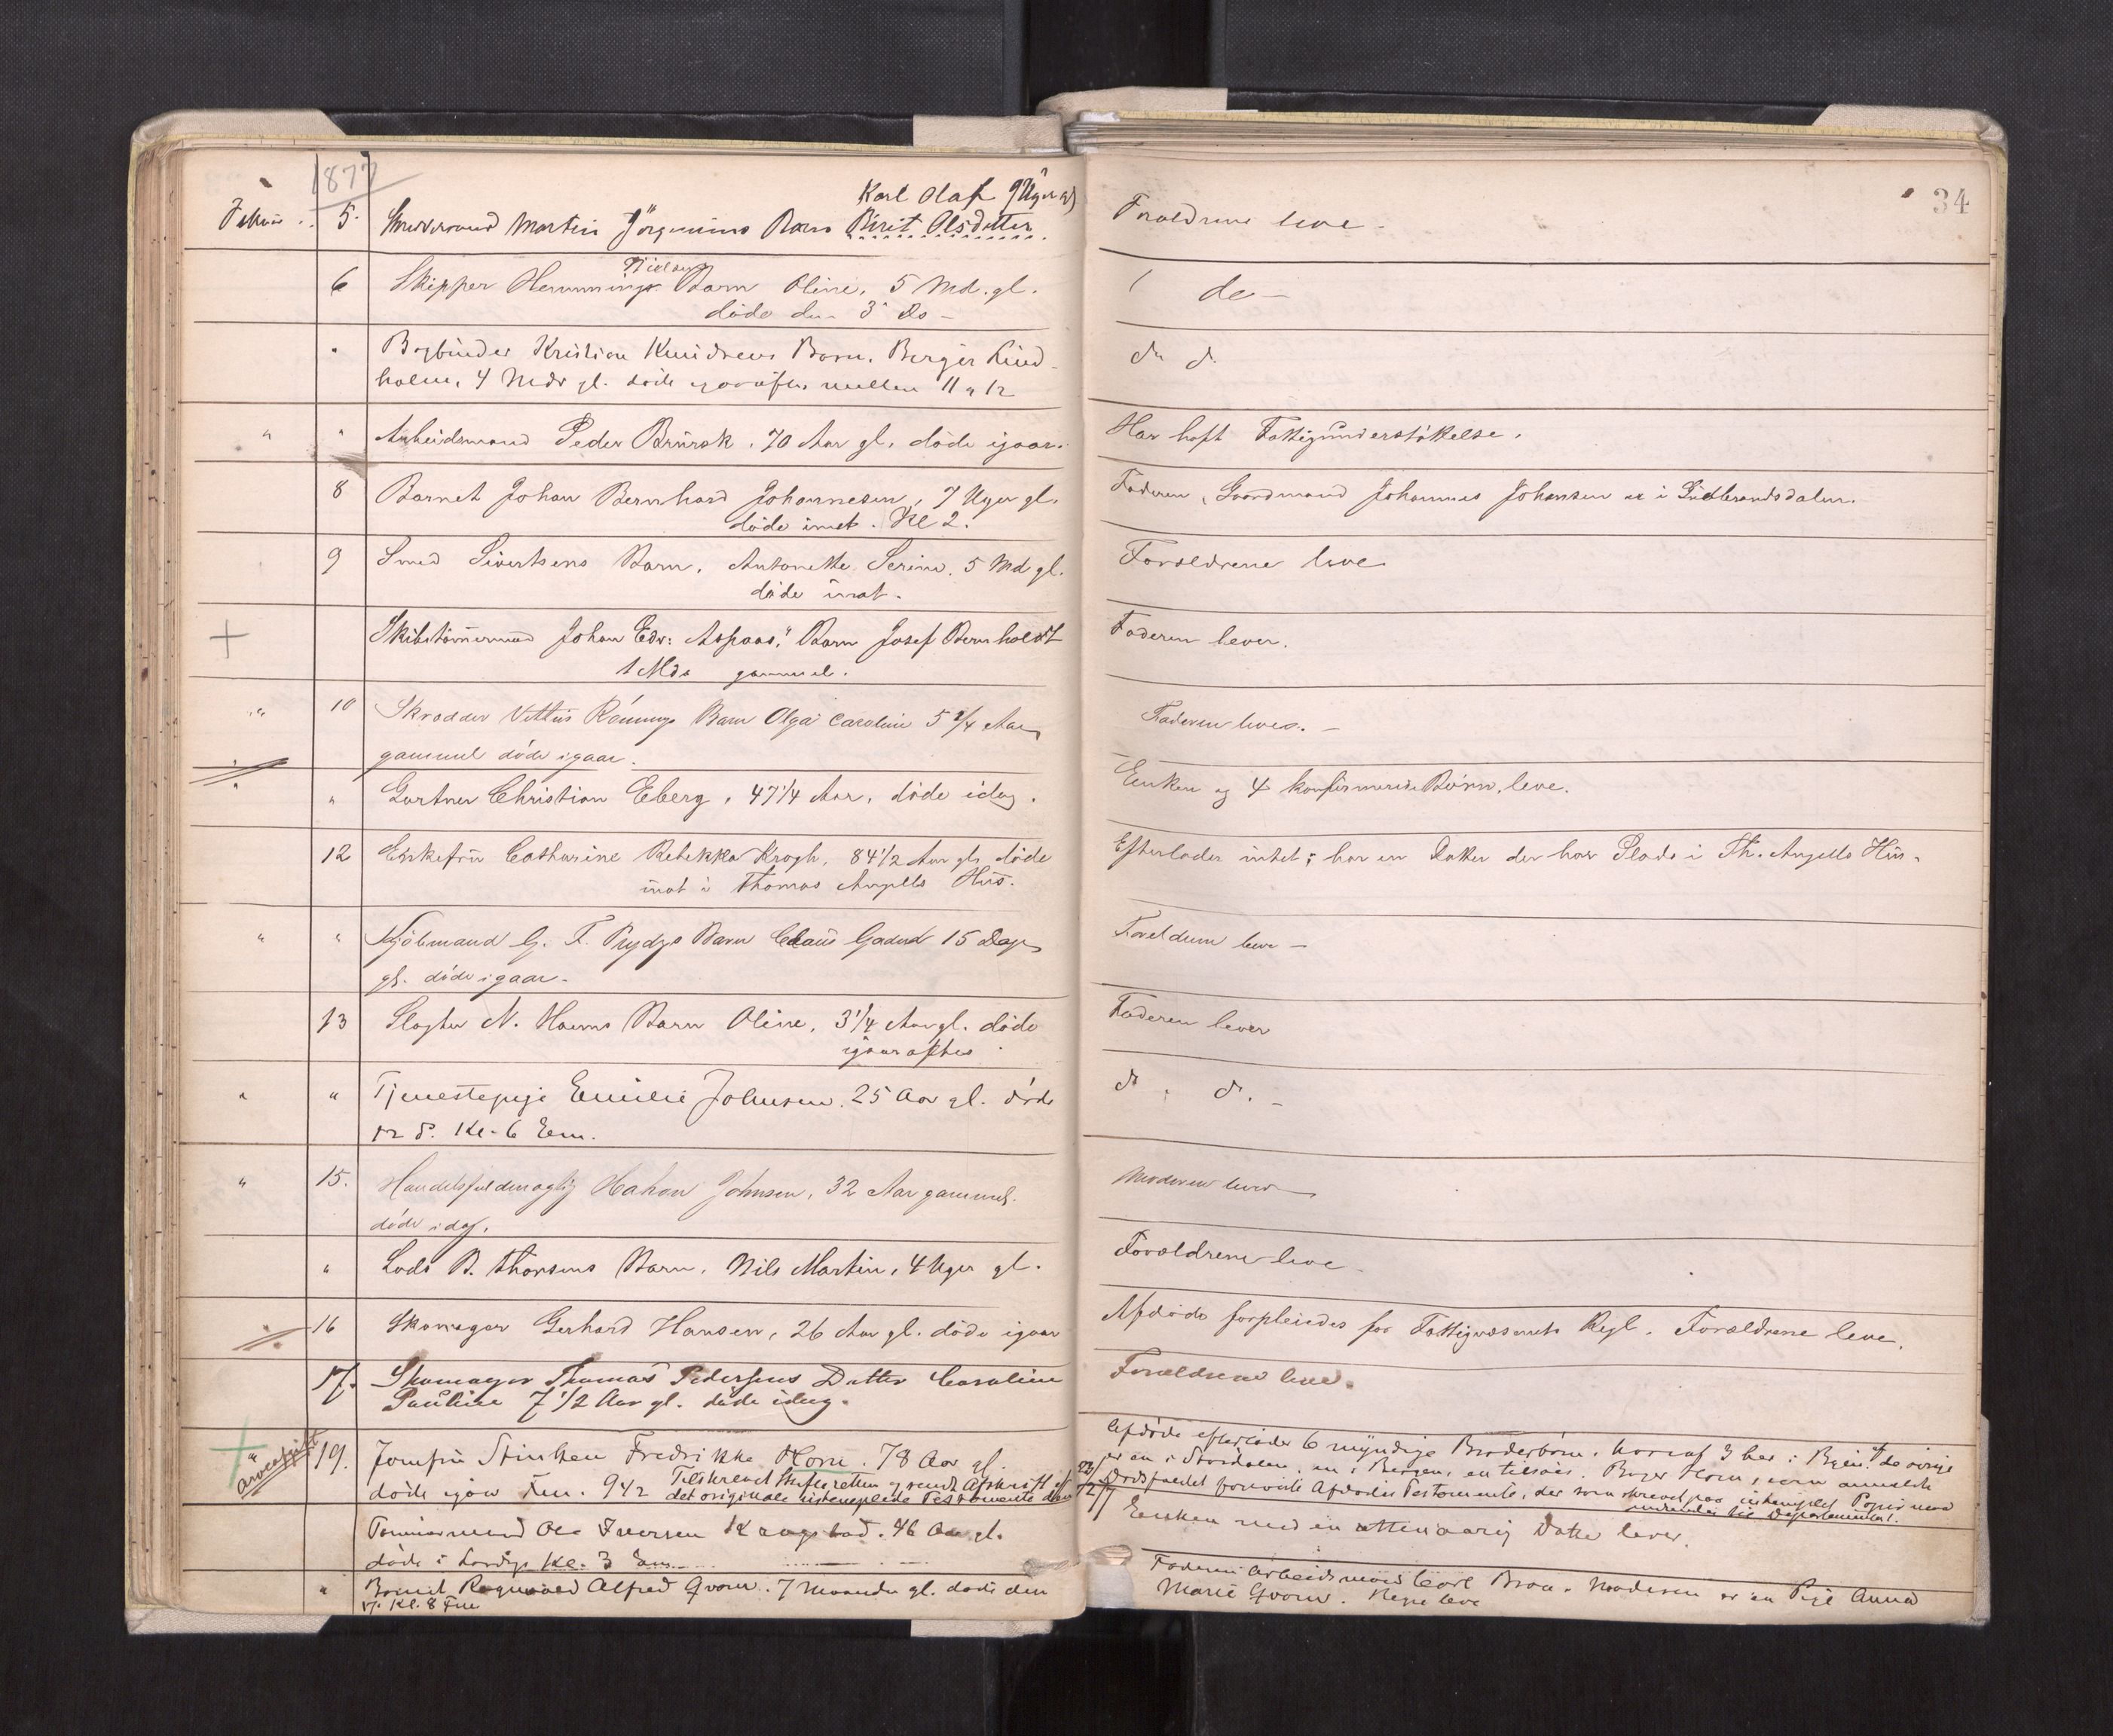 1877
34
Karl Olaf 9 Uger gl
Februar 5. Martin Jörgensens Barn Birit Olsdatter.
Forældrene leve.
Nielsens
6 Skipper Hemmings Barn Oline, 5 Md. gl.
døde den 3 Ds
do
" Bogbinder Kristian Knudsens Barn. Birger Lind-
holm, 4 Mdr gl. døde igaaraftes mellem 11 & 12
do do
" " Arbeidsmand Peder Brursk. 70 Aar gl. døde igaar.
Har haft Fattigunderstøttelse.
8 Barnet Johan Bernhard Johannesen, 7 Uger gl.
døde inat. Kl 2.
Faderen, Gaardmand Johannes Johansen er i Gudbrandsdalen.
9 Smed Sivertsens Barn, Antonette Serine. 5 Md gl.
døde inat.
Forældrene leve
Skibstømmermand Johan Edv: Aspaas' Barn Josef Bernholdt
1 Mdr gammel.
Faderen lever.
" 10 Skrædder Vittus Rönnings Barn Olga Caroline 5 3/4 Aar
gammel døde igaar.
Faderen lever.
" " Gartner Christian Eberg, 47 1/4 Aar, døde idag.
Enken og 4 konfirmerede Børn, leve.
12 Enkefru Cathrine Rebekka Krogh, 84 1/2 Aar gl. døde
inat i Thomas Angells Hus.
Efterlader intet; har en Datter der har Plads i Th. Angells Hus.
" " Kjøbmand G. F. Prydz Barn Claus Gadus 15 Dage
gl. døde igaar.
Forældrene leve
13 Slagter N. Moens Barn Oline, 3 1/4 Aar gl. døde
igaaraftes
Faderen lever
" " Tjenestepige Emilie Johnsen. 25 Aar gl. døde
12 d. Kl. 6 Em.
do do.
" 15. Handelsfuldmægtig Hakon Johnsen, 32 Aar gammel.
døde idag.
Moderen lever
" Lods B. Thorsens Barn, Nils Martin, 4 Uger gl.
Forældrene leve
" 16 Skomager Gerhard Hansen, 26 Aar gl. døde igaar
Afdøde forpleiedes for Fattigvæsenets Regl. Forældrene leve.
17. Skomager Thomas Pedersens Datter Caroline
Pauline 7 1/2 Aar gl. døde idag.
Forældrene leve.
" Arveafgift 19. Jomfru Stinken Fredrikke Horn. 78 Aar gl.
døde igaar Fm. 9 1/2 Tilskrevet Skifteretten og sendt Afskrift af
det originale ustemplede Testamente den 23/2 77
Afdøde efterlader 6 myndige Broderbørn. hvoraf 3 her i Byen. af de øvrige
er en i Stordalen, en i Bergen, en tilsøes. Bager Horn, som anmeldte
Dødsfaldet foreviste Afdødes Testamente, der som skrevet paa ustemplet Papir med
indsendes til Departementet.
Tømmermand Ole Iversen Krogstad. 46 Aar gl.
døde i Lørdags Kl. 3 Em.
Enken med en attenaarig Datter lever.
" Barnet Ragnvald Alfred Qvorn. 7 Maaneder gl. døde den
17. Kl. 8 Fm
Faderen Arbeidsmand Carl Broa. Moderen er en Pige Anna
Marie Qvorn. Begge leve